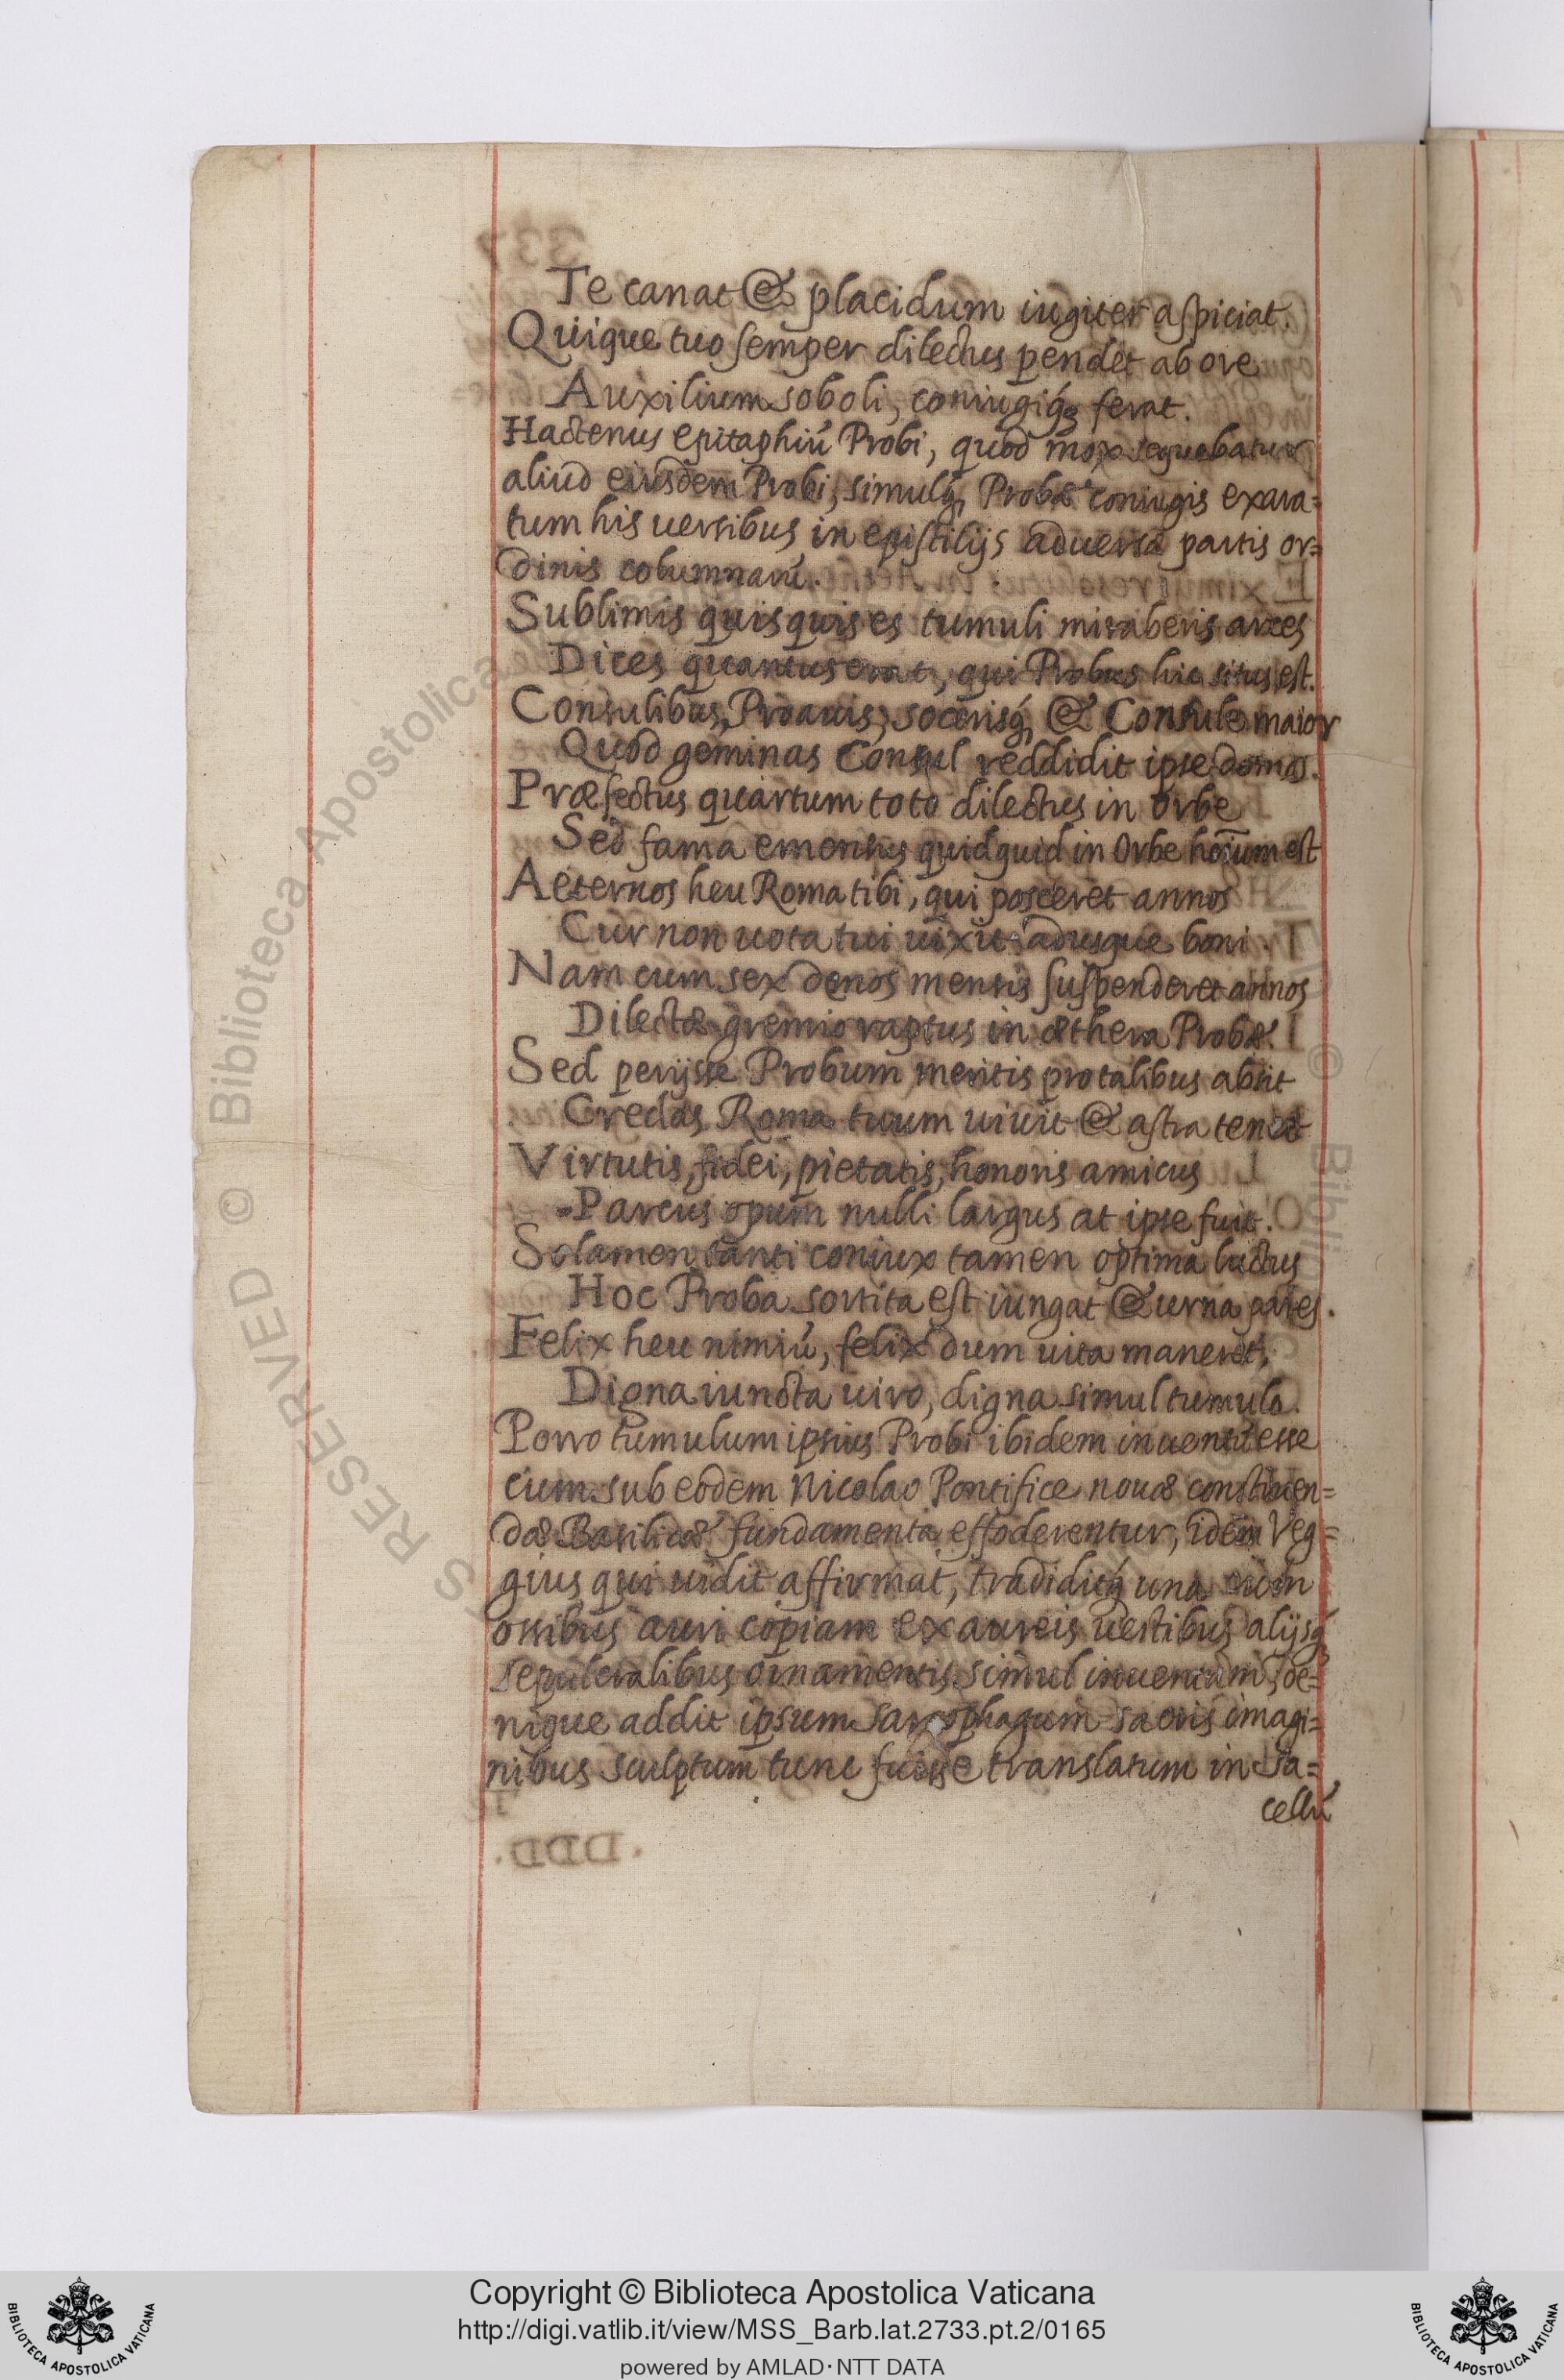 Te canat & placidum iugiter aspiciat.
Quique tuo semper dilectus pendet ab ore
Auxilium soboli, coniugiq́ꝫ ferat.
Hactenus epitaphiú Probi, quod mox sequebatur
aliud eiusdem Probi, simulq́, Probæ coniugis exara=
tum his uersibus in epistilijs aduersa partis or=
dinis columnarú.
Sublimis quisquis es tumuli miraberis arces
Dices quantus erat, qui Probus hic situs est.
Consulibus, Proauis, socerisq́, & Consule maior
Quod geminas Consul reddidit ipse domos.
Præfectus quartum toto dilectus in orbe
Sed fama emensus quidquid in Orbe hoīum est
Aeternos heu Roma tibi, qui posceret annos
Cur non uota tui uixit adusque boni.
Nam cum sex denos mensis suspenderet annos
Dilectæ gremio raptus in æthera Probæ.
Sed perijsse Probum meritis pro talibus absit
Credas Roma tuum uiuit & astra tenet
Virtutis, fidei, pietatis, honoris amicus
Parcus opum nulli largus at ipse fuit.
Solamen tanti coniux tamen optima luctus
Hoc Proba sortita est iungat & urna pares.
Felix heu nimiú, felix dum uita maneret,
Digna iuncta uiro, digna simul tumulo.
Porro tumulum ipsius Probi ibidem inuentú esse
cum sub eodem Nicolao Pontifice nouæ constuen=
dæ Basilicæ fundamenta effoderentur, idem Veg=
gius qui uidit affirmat, tradiditq́ una cum
ossibus auri copiam ex aureis uestibus alijsq́
sepulcralibus ornamentis simul inuentum, de=
nique addit ipsum sarcophagum sacris imagi=
nibus sculptum tunc fuisse translatum in sa=
cellú
Copyright © Biblioteca Apostolica Vaticana
http://digi.vatlib.it/view/MSS_Barb.lat.2733.pt.2/0165
powered by AMLAD·NTT DATA
BIBLIOTECA APOSTOLICA VATICANA
BIBLIOTECA APOSTOLICA VATICANA